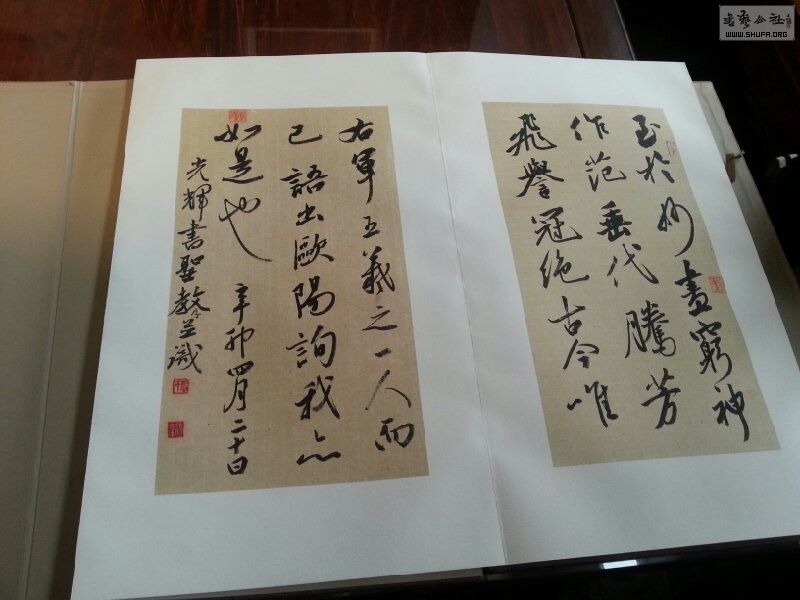 至於妙盡窮神
作范垂代騰芳
飛譽冠絕古今唯
右軍王羲之一人而
已語出歐陽詢我亦
如是也 辛卯四月二十日
光輝書聖教并識
書藝公社
WWW.SHUFA.ORG